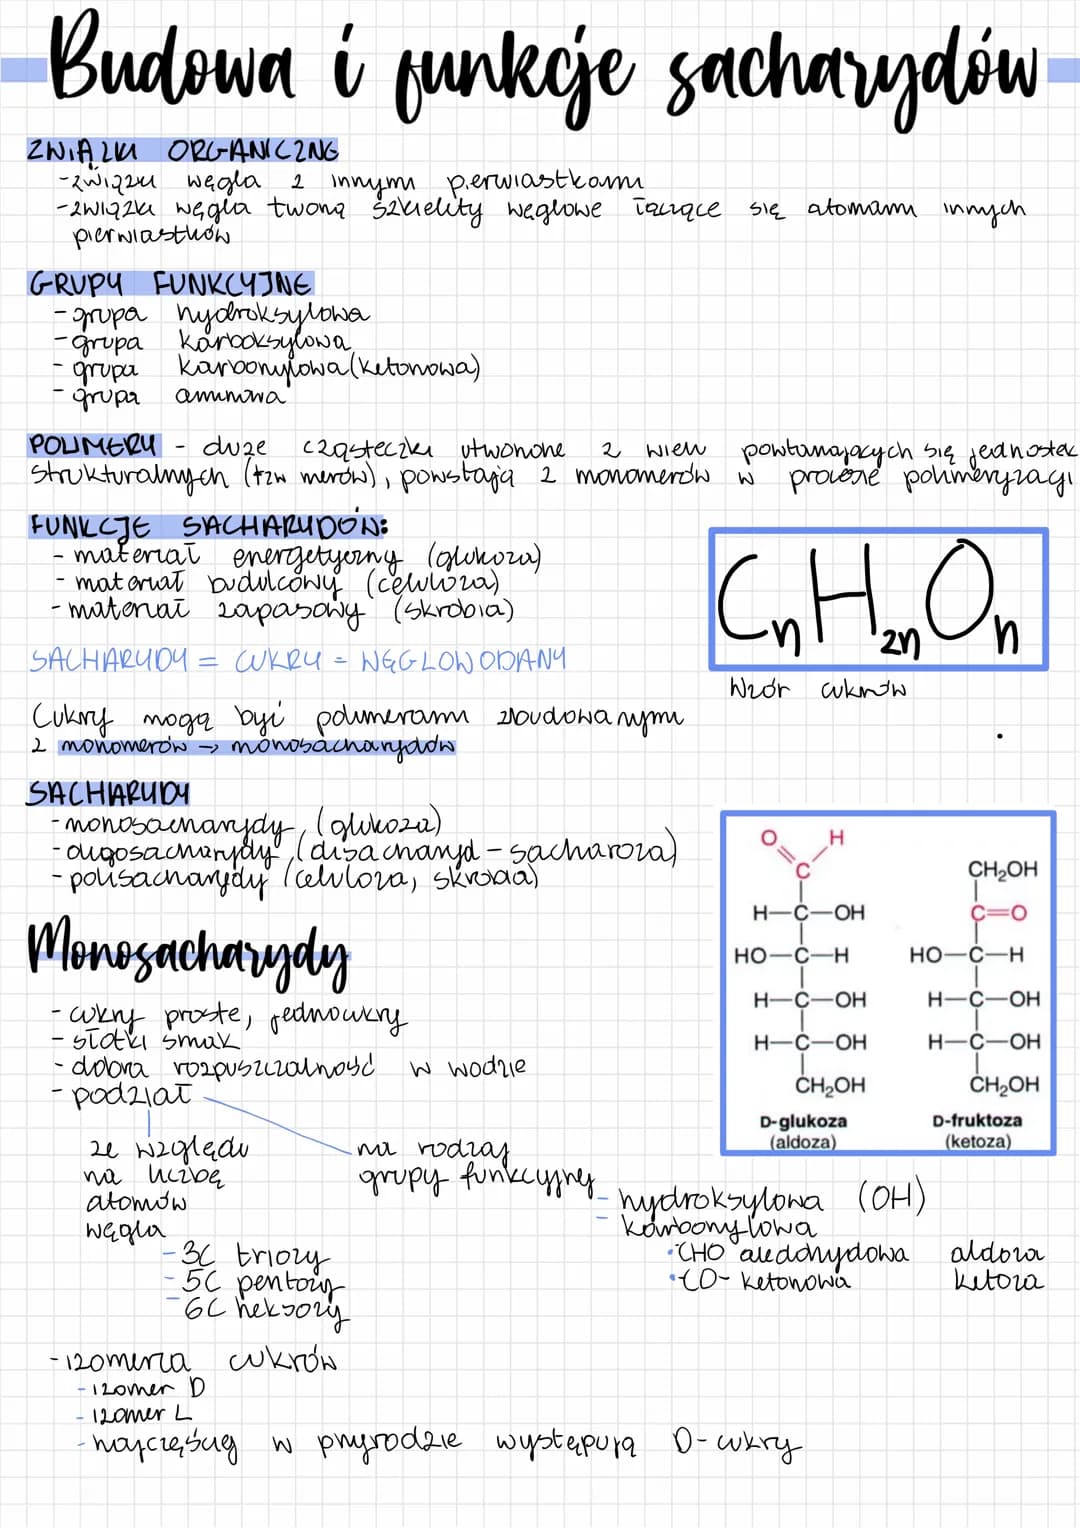 Budowa i funkcje sacharydów
ZWIĄZKI ORGANICZNE
-związki węgla z innymi pierwiastkami
-związki węgla tworzą szkielety węglowe łączące się atomami innych
pierwiastków
GRUPY FUNKCYJNE
-grupa hydroksylowa
-grupa karboksylowa
- grupa karbonylowa (ketonowa)
- grupa aminowa
POLIMERY - duże cząsteczki utworzone z wielu powtarzających się jednostek
strukturalnych (tzw merów), powstają z monomerów w procesie polimeryzacji
FUNKCJE SACHARYDÓW:
- materiał energetyczny (glukoza)
- materiał budulcowy (celuloza)
- materiał zapasowy (skrobia)
CnH2nOn
SACHARYDY = CUKRY = WĘGLOWODANY
Wzór cukrów
Cukry mogą być polimerami zbudowanymi
z monomerów → monosacharydów
SACHARYDY
-monosacharydy (glukoza)
-oligosacharydy (disacharyd - sacharoza)
- polisacharydy (celuloza, skrobia)
O H
C
H-C-OH
HO-C-H
H-C-OH
H-C-OH
CH2OH
D-glukoza
(aldoza)
CH2OH
C=O
HO-C-H
H-C-OH
H-C-OH
CH2OH
D-fruktoza
(ketoza)
Monosacharydy
- cukry proste, jednocukry
- słodki smak
- dobra rozpuszczalność w wodzie
- podział
ze względu
na liczbę
atomów
węgla
- 3C triozy
- 5C pentozy
- 6C heksozy
na rodzaj
grupy funkcyjnej
- hydroksylowa (OH)
- karbonylowa
•CHO aldehydowa aldoza
•CO- ketonowa ketoza
-izomeria cukrów
- izomer D
- izomer L
- najczęściej w przyrodzie występują D-cukry